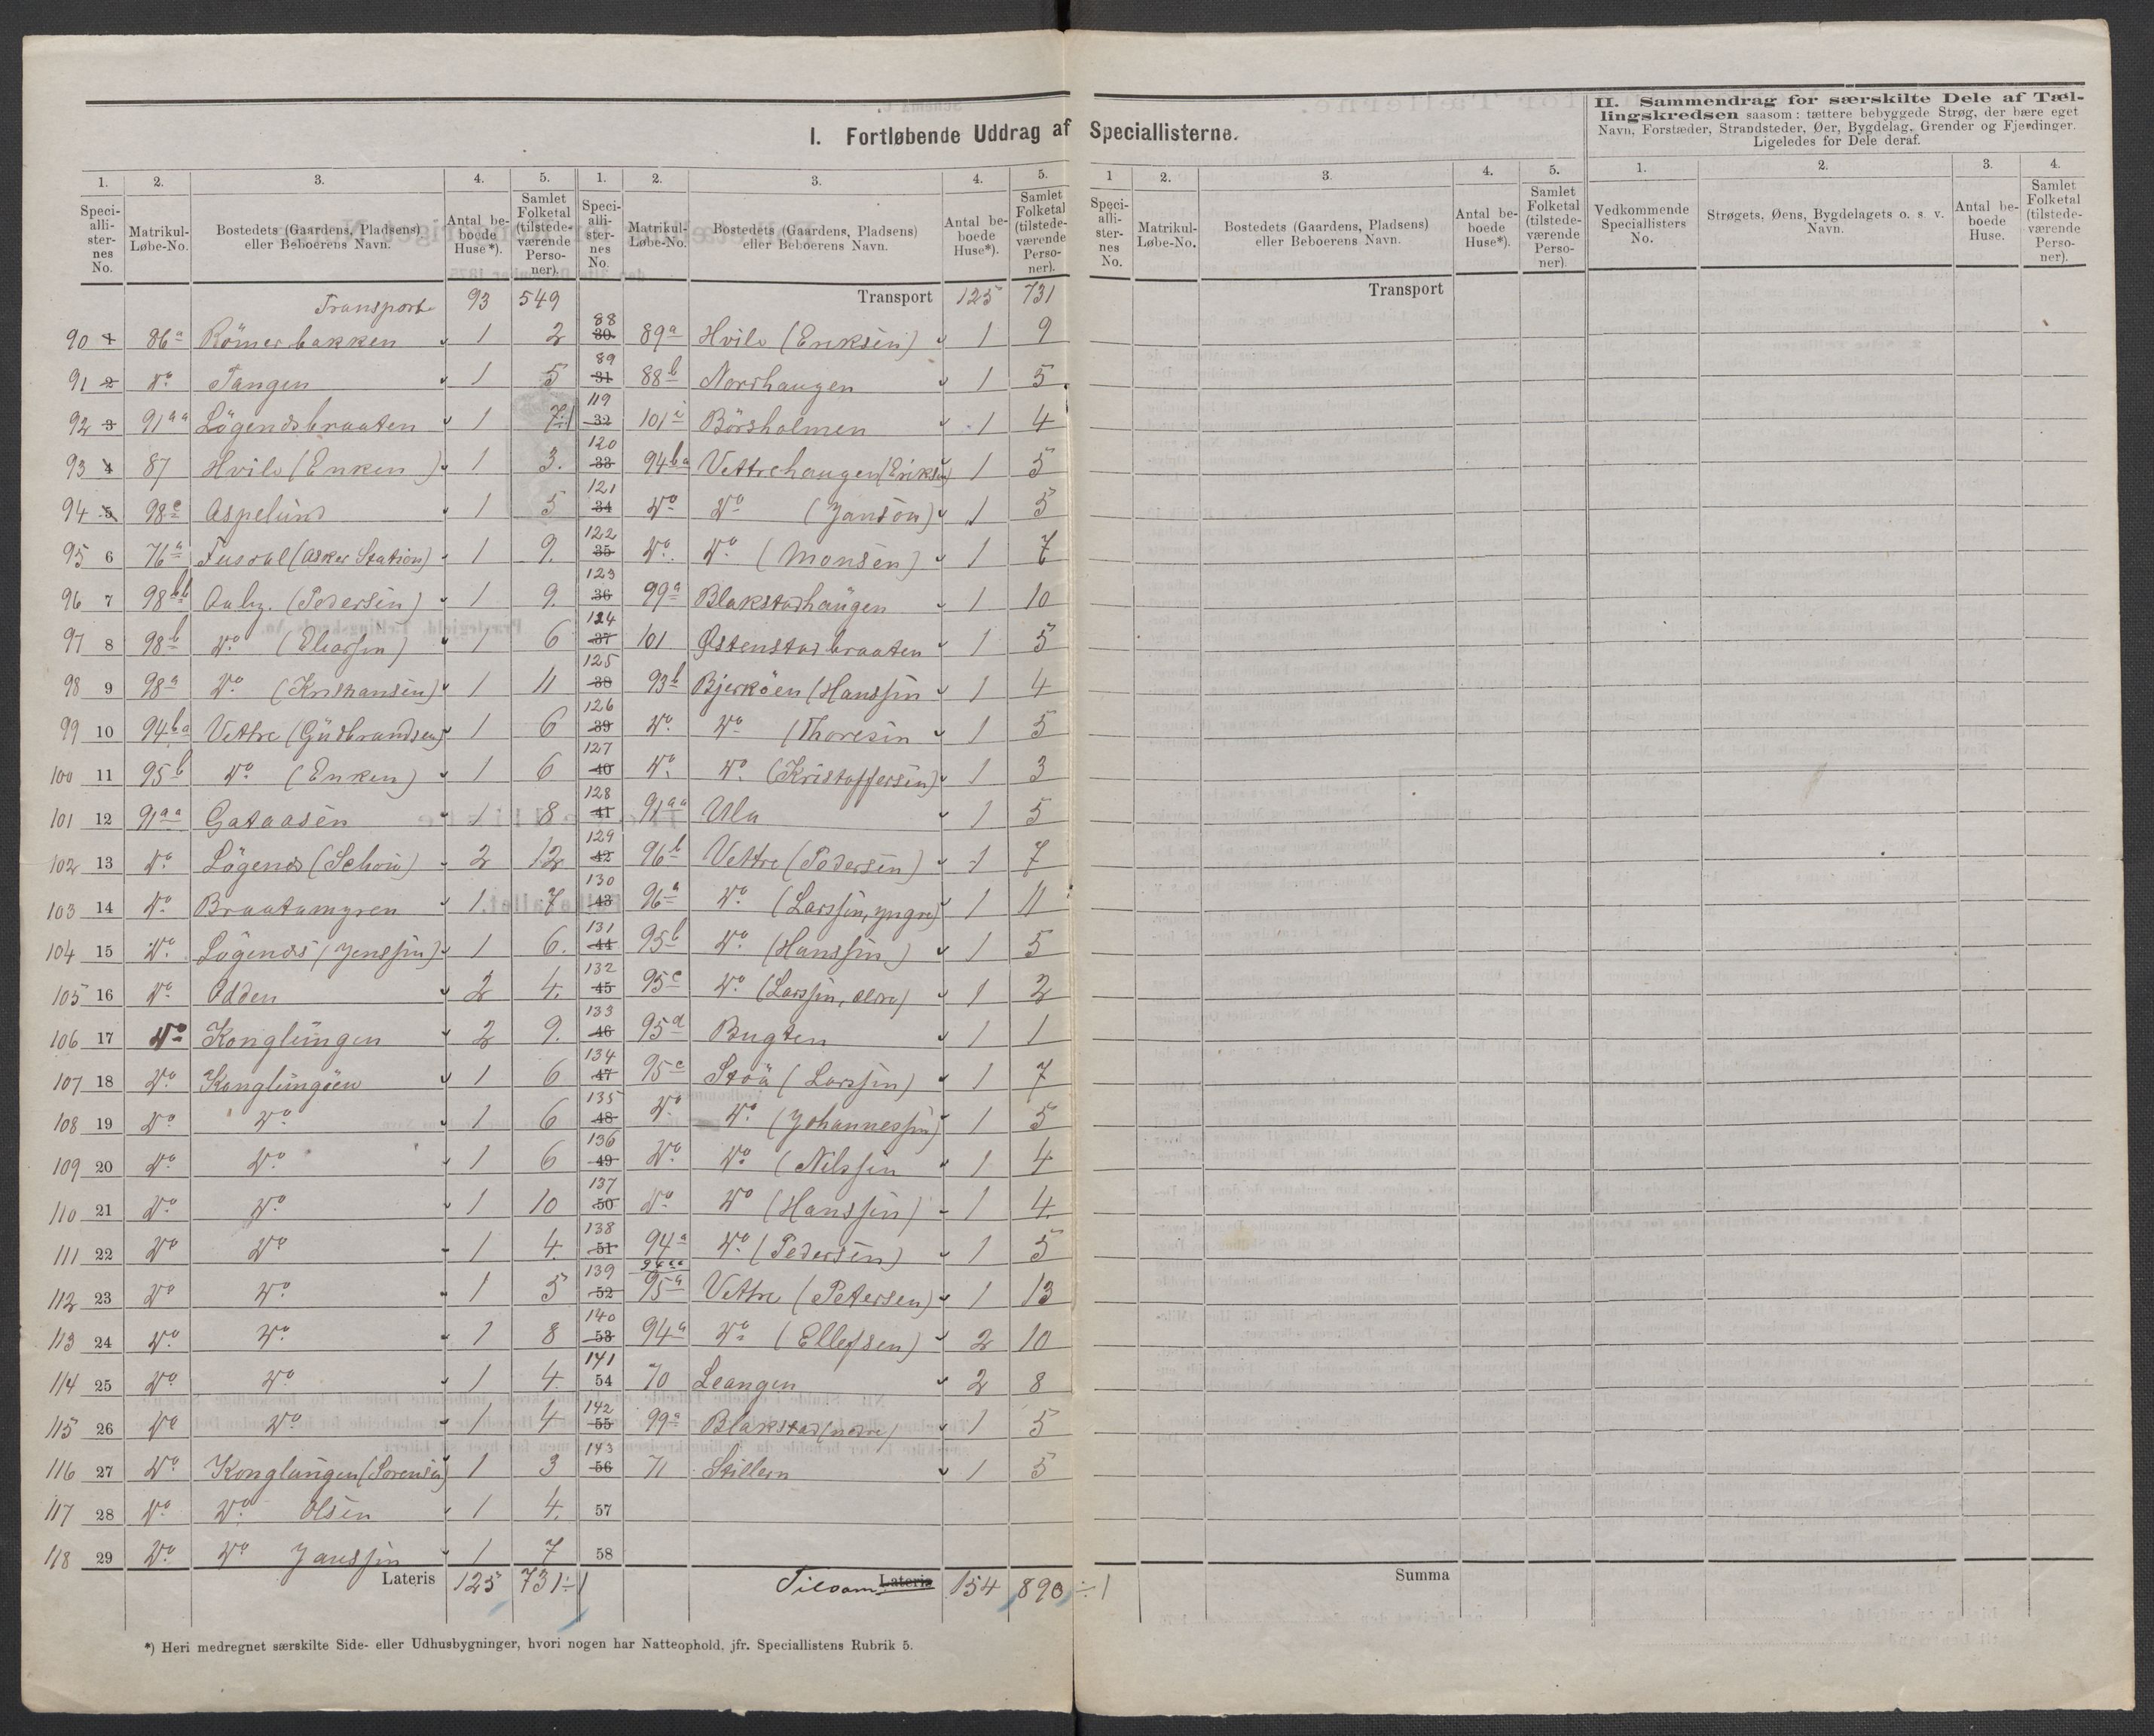 I. Fortløbende Uddrag af Speciallisterne.
II. Sammendrag for særskilte Dele af Tæl-
lingskredsen saasom: tættere bebyggede Strøg, der bære eget
Navn, Forstæder, Strandsteder, Øer, Bygdelag, Grender og Fjerdinger.
Ligeledes for Dele deraf.
1. 2. 3. 4. 5.
Speci-alli-ster-nes No. Matrikul-Løbe-No. Bostedets (Gaardens, Pladsens) eller Beboerens Navn. Antal be-boede Huse*). Samlet Folketal (tilstede-værende Perso-ner).
Transport 93 549
90 1 86a Römerbakken 1 2
91 2 Do Tangen 1 5
92 3 91aa Lögendsbraaten 1 7÷1
93 4 87 Hvile (Enken) 1 3.
94 5 98c Aspelund 1 5
95 6 76a Fusdal (Asker Station) 1 9.
96 7 98bb Aaby. (Pedersen) 1 9.
97 8 98b Do (Eliassen) 1 6
98 9 98a Do (Kristiansen) 1 11
99 10 94ba Vettre (Gudbrandsen) 1 6
100 11 95b Do (Enken) 1 6
101 12 91aa Gataasen 1 8
102 13 Do Lögenes 2 12
103 14 Do Braatamyren 1 7
104 15 Do Lögenes (Jenssen) 1 6.
105 16 Do Odden 2 4.
106 17 Do Konglungen 2 9.
107 18 Do Konglungöen 1 6
108 19 Do Do 1 6
109 20 Do Do 1 6
110 21 Do Do 1 10
111 22 Do Do 1 4.
112 23 Do Do 1 5
113 24 Do Do 1 8
114 25 Do Do 1 4.
115 26 Do Do 1 4
116 27 Do Konglungen (Sorensen) 1 3
117 28 Do Do Olsen 1 4.
118 29 Do Do Janssen 1 7
Lateris 125 731÷1
1. 2. 3. 4. 5.
Speci-alli-ster-nes No. Matrikul-Løbe-No. Bostedets (Gaardens, Pladsens) eller Beboerens Navn. Antal be-boede Huse*). Samlet Folketal (tilstede-værende Perso-ner).
Transport 125 731
88 30. 89a Hvile (Eriksen) 1 9
89 31 88b Nordhaugen 1 5
119 32 101 Börsholmen 1 4
120 33 94ba Vettrehaugen (Eriksen) 1 5
121 34 Do Do (Janson) 1 5
122 35 Do Do (Monsen) 1 7
123 36 99a Blakstadhaugen 1 10
124 37 101 Østenstadbraaten 1 5
125 38 93b Bjerköen (Hanssen 1 4
126 39 Do Do (Thoresen 1 5
127 40 Do Do (Kristoffersen) 1 3
128 41 91aa Ula 1 5
129 42 96b Vettre (Pedersen) 1 7
130 43 96a Do (Larssen, yngre) 1 11
131 44 95b Do (Hanssen) 1 5
132 45 95c Do (Larssen, ældre) 1 2
133 46 95d Bugten 1 1
134 47 95e Stöa (Larssen) 1 7
135 48 Do Do (Johannessen) 1 5
136 49 Do Do (Nilssen 1 4
137 50 Do Do (Hanssen) 1 4.
138 51 94a Do (Pedersen) 1 5
139 52 95a Vettre (Petersen) 1 13
140 53 94a Do (Ellefsen) 2 10
141 54 70 Leangen 2 8
142 55 99a Blakstad (nedre) 1 5
143 56 71 Stillern 1 5
57
58
Tilsam. Lateris 154 890 ÷1
1 2. 3. 4. 5.
Speci-alli-ster-nes No. Matrikul-Løbe-No. Bostedets (Gaardens, Pladsens) eller Beboerens Navn. Antal be-boede Huse*). Samlet Folketal (tilstede-værende Perso-ner).
Transport
Summa
1. 2. 3. 4.
Vedkommende Speciallisters No. Strøgets, Øens, Bygdelagets o. s. v. Navn. Antal be-boede Huse. Samlet Folketal (tilstede-værende Perso-ner).
*) Heri medregnet særskilte Side- eller Udhusbygninger, hvori nogen har Natteophold, jfr. Speciallistens Rubrik 5.